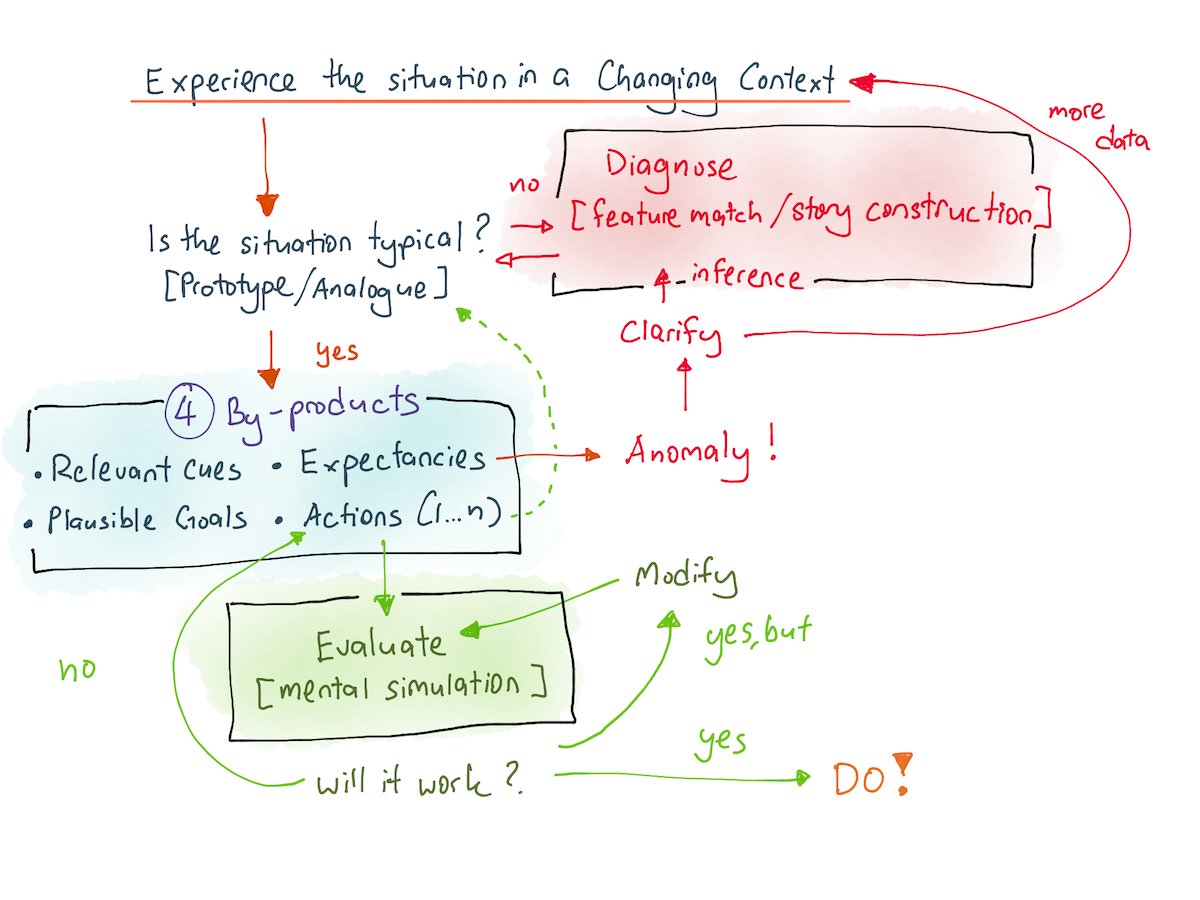 Experience the situation in a Changing Context
more
data
no
Diagnose
[feature match/story construction]
Is the situation typical?
[Prototype/Analogue]
inference
Clarify
yes
4 By-products
• Relevant cues • Expectancies
Anomaly!
• Plausible Goals • Actions (1...n)
Modify
yes, but
Evaluate
[mental simulation]
no
yes
will it work?
DO!